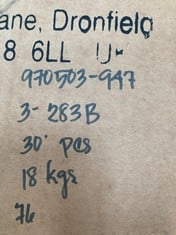 ane, Dronfield
8 6LL UK
970503-947
3-283B
30 pcs
18 kgs
76